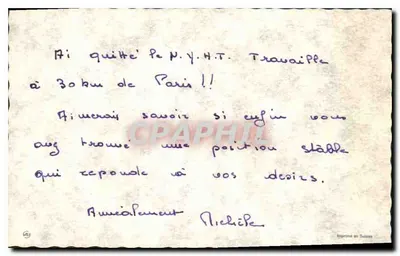 Ai quitté le N.Y.H.T. Travaille
à 30 km de Paris!!
Aimerais savoir si enfin vous
avez trouvé une position stable
qui reponde à vos desirs.
Amicalement Michèle
CPARAMA